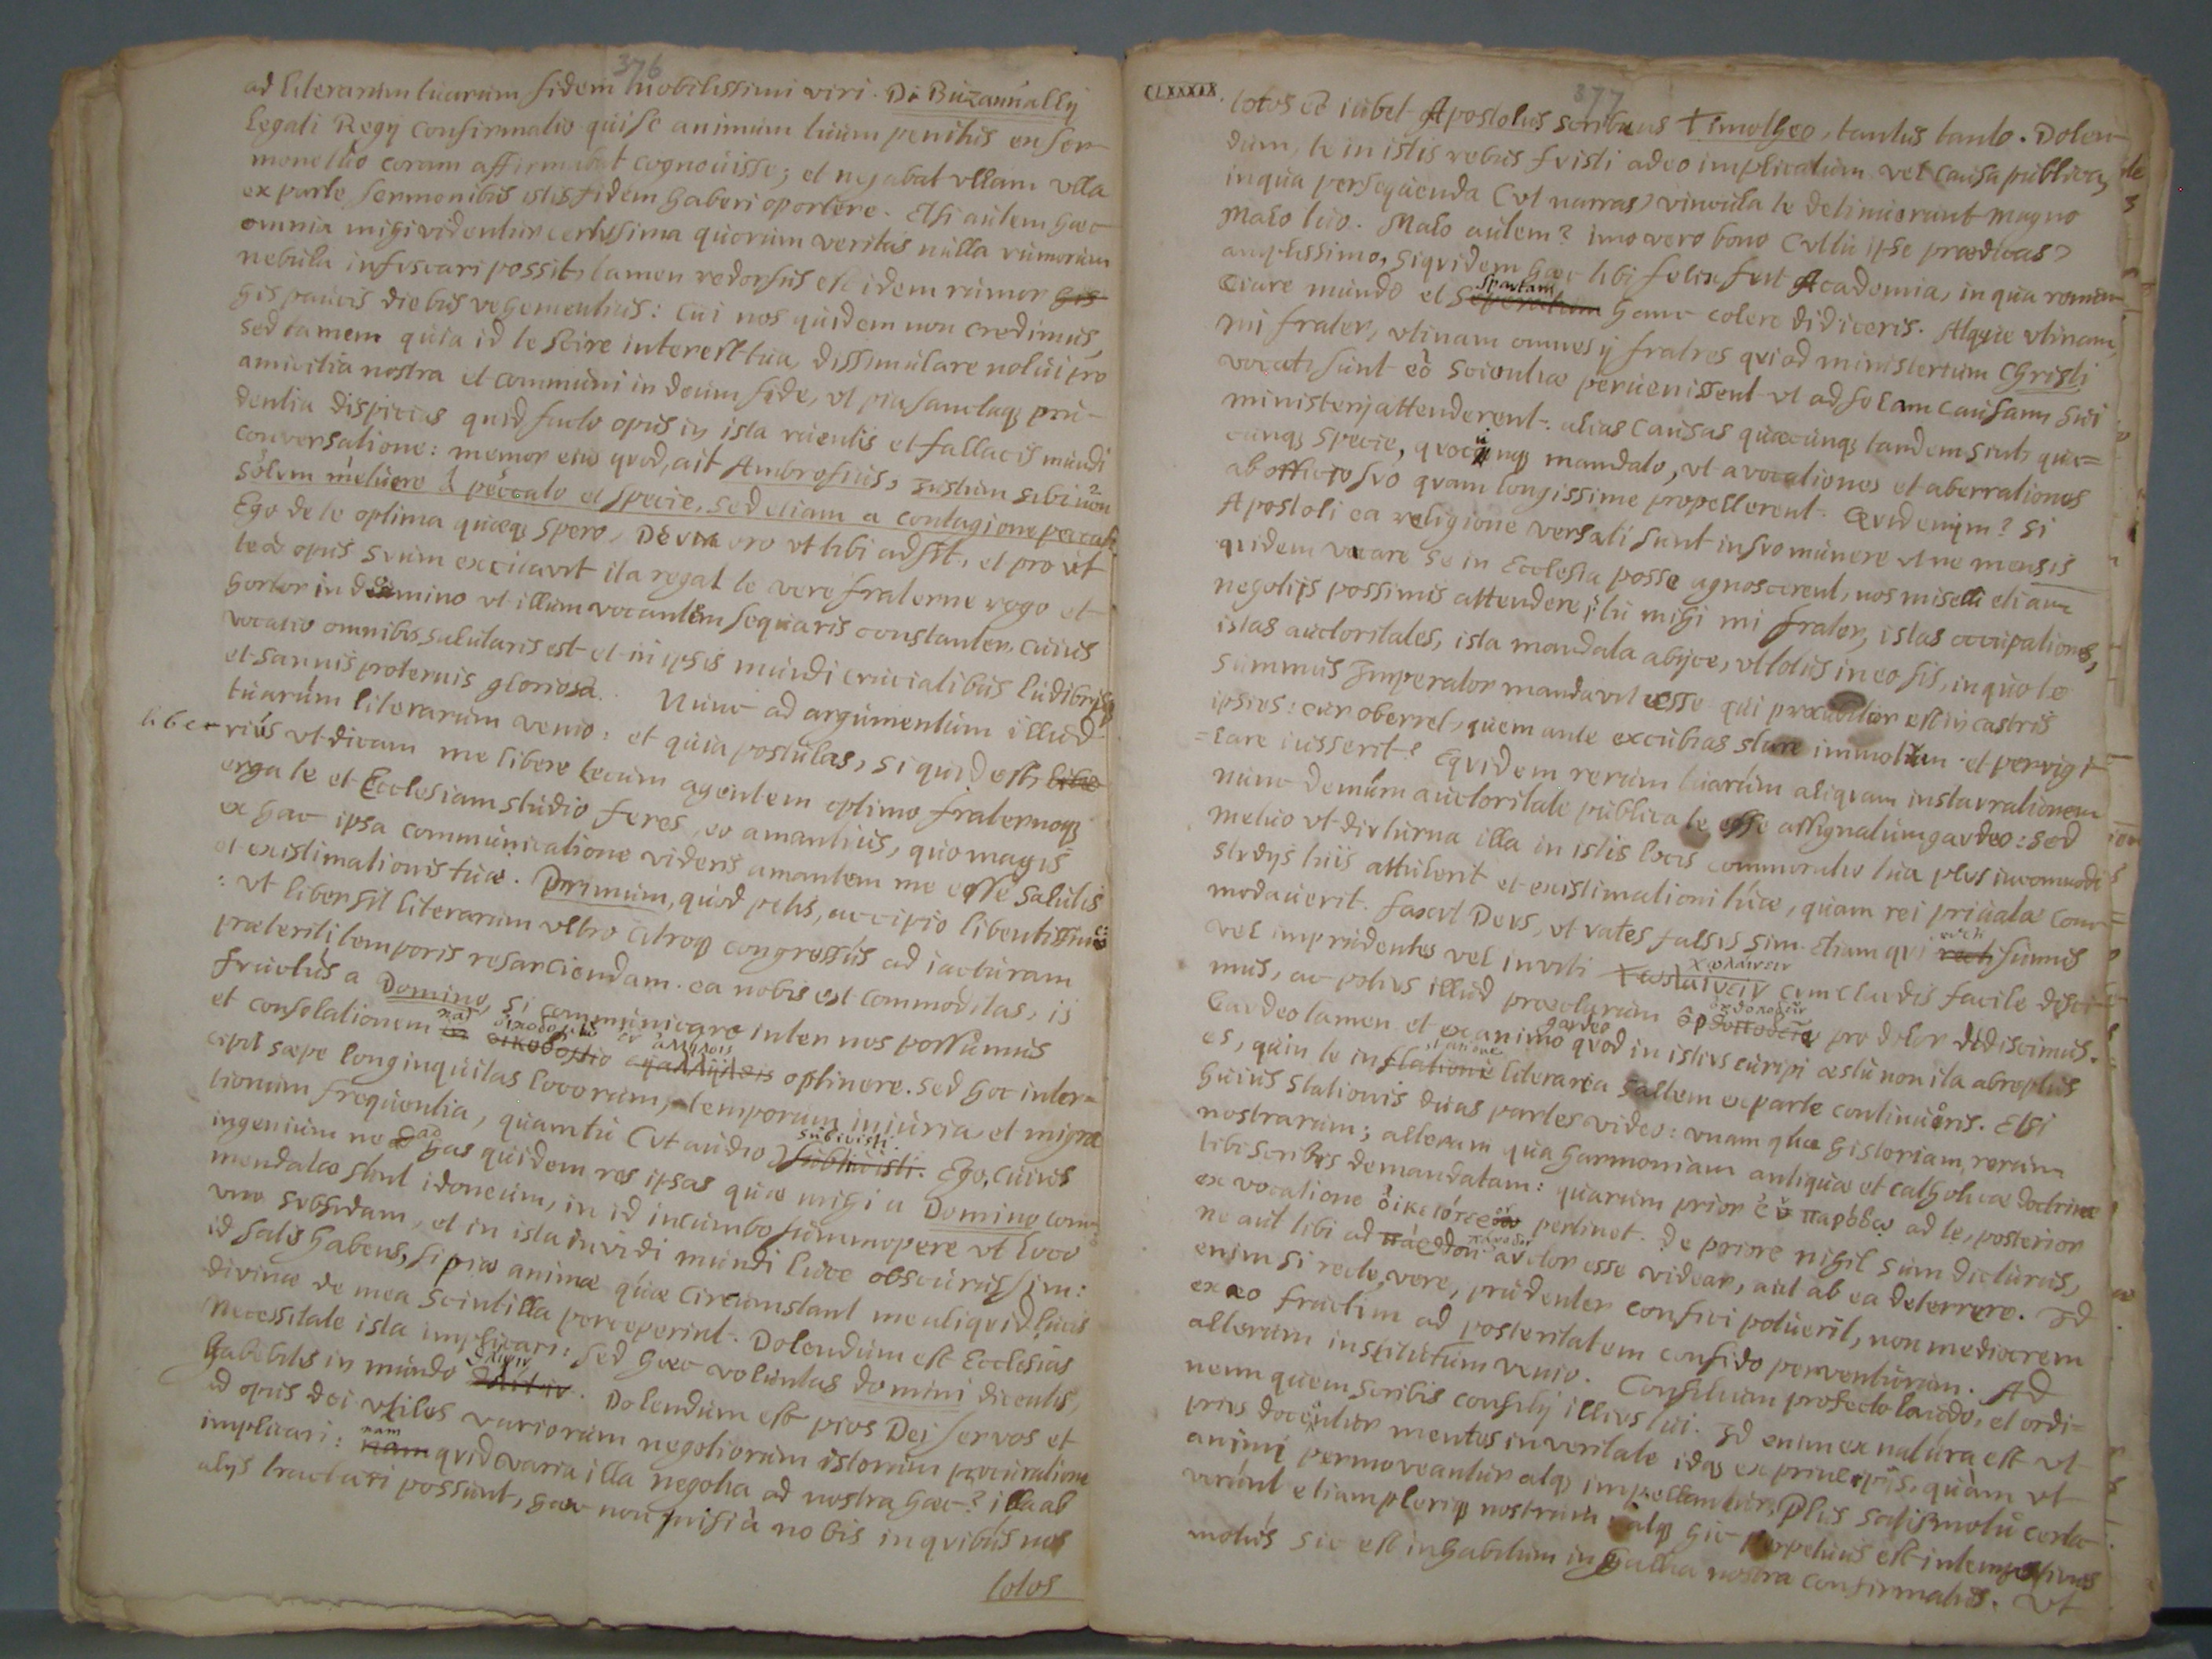 376
ad literarum tuarum fidem nobilissimi viri. Di Buzanually
legati Regij confirmatio qui se animum tuum penitus ex ser-
mone tuo coram affirmabat cognovisse; et negabat vllam vlla
ex parte sermonibus istis fidem haberi oportere. Etsi autem haec
omnia mihi videntur certissima quorum veritas nulla rumorum
nebula infuscari possit, tamen redorsus est idem rumor his
his paucis diebus vehementius: cui nos quidem non credimus,
sed tamen quia id te scire interest tua, dissimulare nolui pro
amicitia nostra et communi in deum fide, vt pia sanctaq pru-
dentia dispicias quid facto opus in ista ruentis et fallacis mundi
conversatione: memor eius quod, ait Ambrosius, Iustum sibi non
solum metuere à peccato et specie, sed etiam a contagione peccati
Ego de te optima quaeq spero, Deum oro vt tibi adsit, et pro vt
te ad opus suum excitavit ita regat te vere fraterne rogo et
hortor in domino vt illum vocantem sequaris constanter, cuius
vocatio omnibus salutaris est et in ipsis mundi cruciatibus ludibrijs
et sannis protervis gloriosa. Nunc ad argumentum illud
tuarum literarum venio: et quia postulas, si quid est, libe
liberius vt dicam me libere tecum agentem optimo fraternoq
erga te et Ecclesiam studio feres, eo amantius, quo magis
ex hac ipsa communicatione videris amantem me esse salutis
et existimationis tuae. Primum, quod petis, accipio libentissime
: vt liber sit literarum vltro citroq congressus ad iacturam
praeteriti temporis resarciendam. ea nobis est commoditas, is
fructus a Domino, si communicare inter nos possumus
et consolationem οἰκοδομὴν ἐν ἀλλήλοις optinere. sed hoc inter-
cipit saepe longinquitas locorum, temporum iniuria et migra
tionum frequentia, quam tu (vt audio) subivisti. Ego, cuius
ingenium ne ad has quidem res ipsas quae mihi a Domino com-
mendatae sunt idoneum, in id incumbo summopere vt loco
vno subsidam, et in ista invidi mundi luce obscurus sim:
id satis habens, si piae animae quae circumstant me aliquid lucis
divinae de mea scintilla perceperint. Dolendum est Ecclesias
necessitate ista implicari: sed haec voluntas domini dicentis,
habebitis in mundo θλίψιν. Dolendum est pios Dei servos et
ad opus dei vtiles variorum negotiorum istorum procuratione
implicari: nam quid varia illa negotia ad nostra haec? illa ab
alijs tractari possunt, haec non nisi à nobis in quibus nos
totos
CLXXXIX
377
totos eē iubet Apostolus scribens Timotheo, tantus tanto. Dolen-
dum, te in istis rebus fuisti adeo implicatum vel causa publica,
in qua persequenda (vt narras) vincula te detinuerunt magno
malo tuo. Malo autem? imo vero bono (vt tu ipse praedicas)
amplissimo, siquidem haec tibi felix fuit Academia, in qua renun-
ciare mundo et Spartam hanc colere didiceris. Atque vtinam,
mi frater, vtinam omnes ij fratres qui ad ministerium Christi
vocati sunt eō scientiae peruenissent vt ad solam causam sui
ministerij attenderent: alias causas quaecunq tandem sint, qua-
cunq specie, quocunq mandato, vt avocationes et aberrationes
ab officio suo quam longissime propellerent. Quid enim? si
Apostoli ea religione versati sunt in suo munere vt ne mensis
quidem vacare se in Ecclesia posse agnoscerent, nos miselli etiam
negotijs possimus attendere? tu mihi mi frater, istas occupationes,
istas auctoritates, ista mandata abijce, vt totus in eo sis, in quo te
summus Imperator mandavit esse qui praecubitor est in castris
ipsius: cur oberret, quem ante excubias stare immotum et pervigi
=lare iusserit? Equidem rerum tuarum aliquam instaurationem
nunc demum auctoritate publica te esse assignatum gaudeo: sed
metuo vt diuturna illa in istis locis commoratio tua plus incommodi
studijs tuis attulerit et existimationi tuae, quam rei privatae com-
modaverit. faxit Deus, vt vates falsus sim. Etiam qui recti sumus
vel imprudentes vel inviti χωλαίνειν cum claudis facile disci-
mus, ac potius illud praeclarum ὀρθοποδεῖν pro dolor dediscimus.
Gaudeo tamen et ex animo gaudeo quod in istius euripi aestu non ita abreptus
es, quin te in statione literaria saltem ex parte continueris. Etsi
huius stationis duas partes video: vnam qua historiam rerum
nostrarum; alteram qua harmoniam antiquae et catholicae doctrinae
tibi scribis demandatam: quarum prior ἐν παρόδῳ ad te, posterior
ex vocatione pertinet. De priore nihil sum dicturus,
ne aut tibi ad πάροδον auctor esse videar, aut ab ea deterrere. Id
enim si recte, vere, prudenter confici potuerit, non mediocrem
ex eo fructum ad posteritatem confido perventurum. Ad
alterum institutum venio. Consilium profecto laudo, et ordi-
nem quem scribis consilij illius tui. Id enim ex natura est vt
prius doceantur mentes in veritate idq ex principijs, quàm vt
animi permoveantur atq impellantur. Plus satis motū certa-
verunt etiam pleriq nostrum atq hic perpetuus est intempestivus
motus sic est in habitum in Gallia nostra confirmatus. Vt